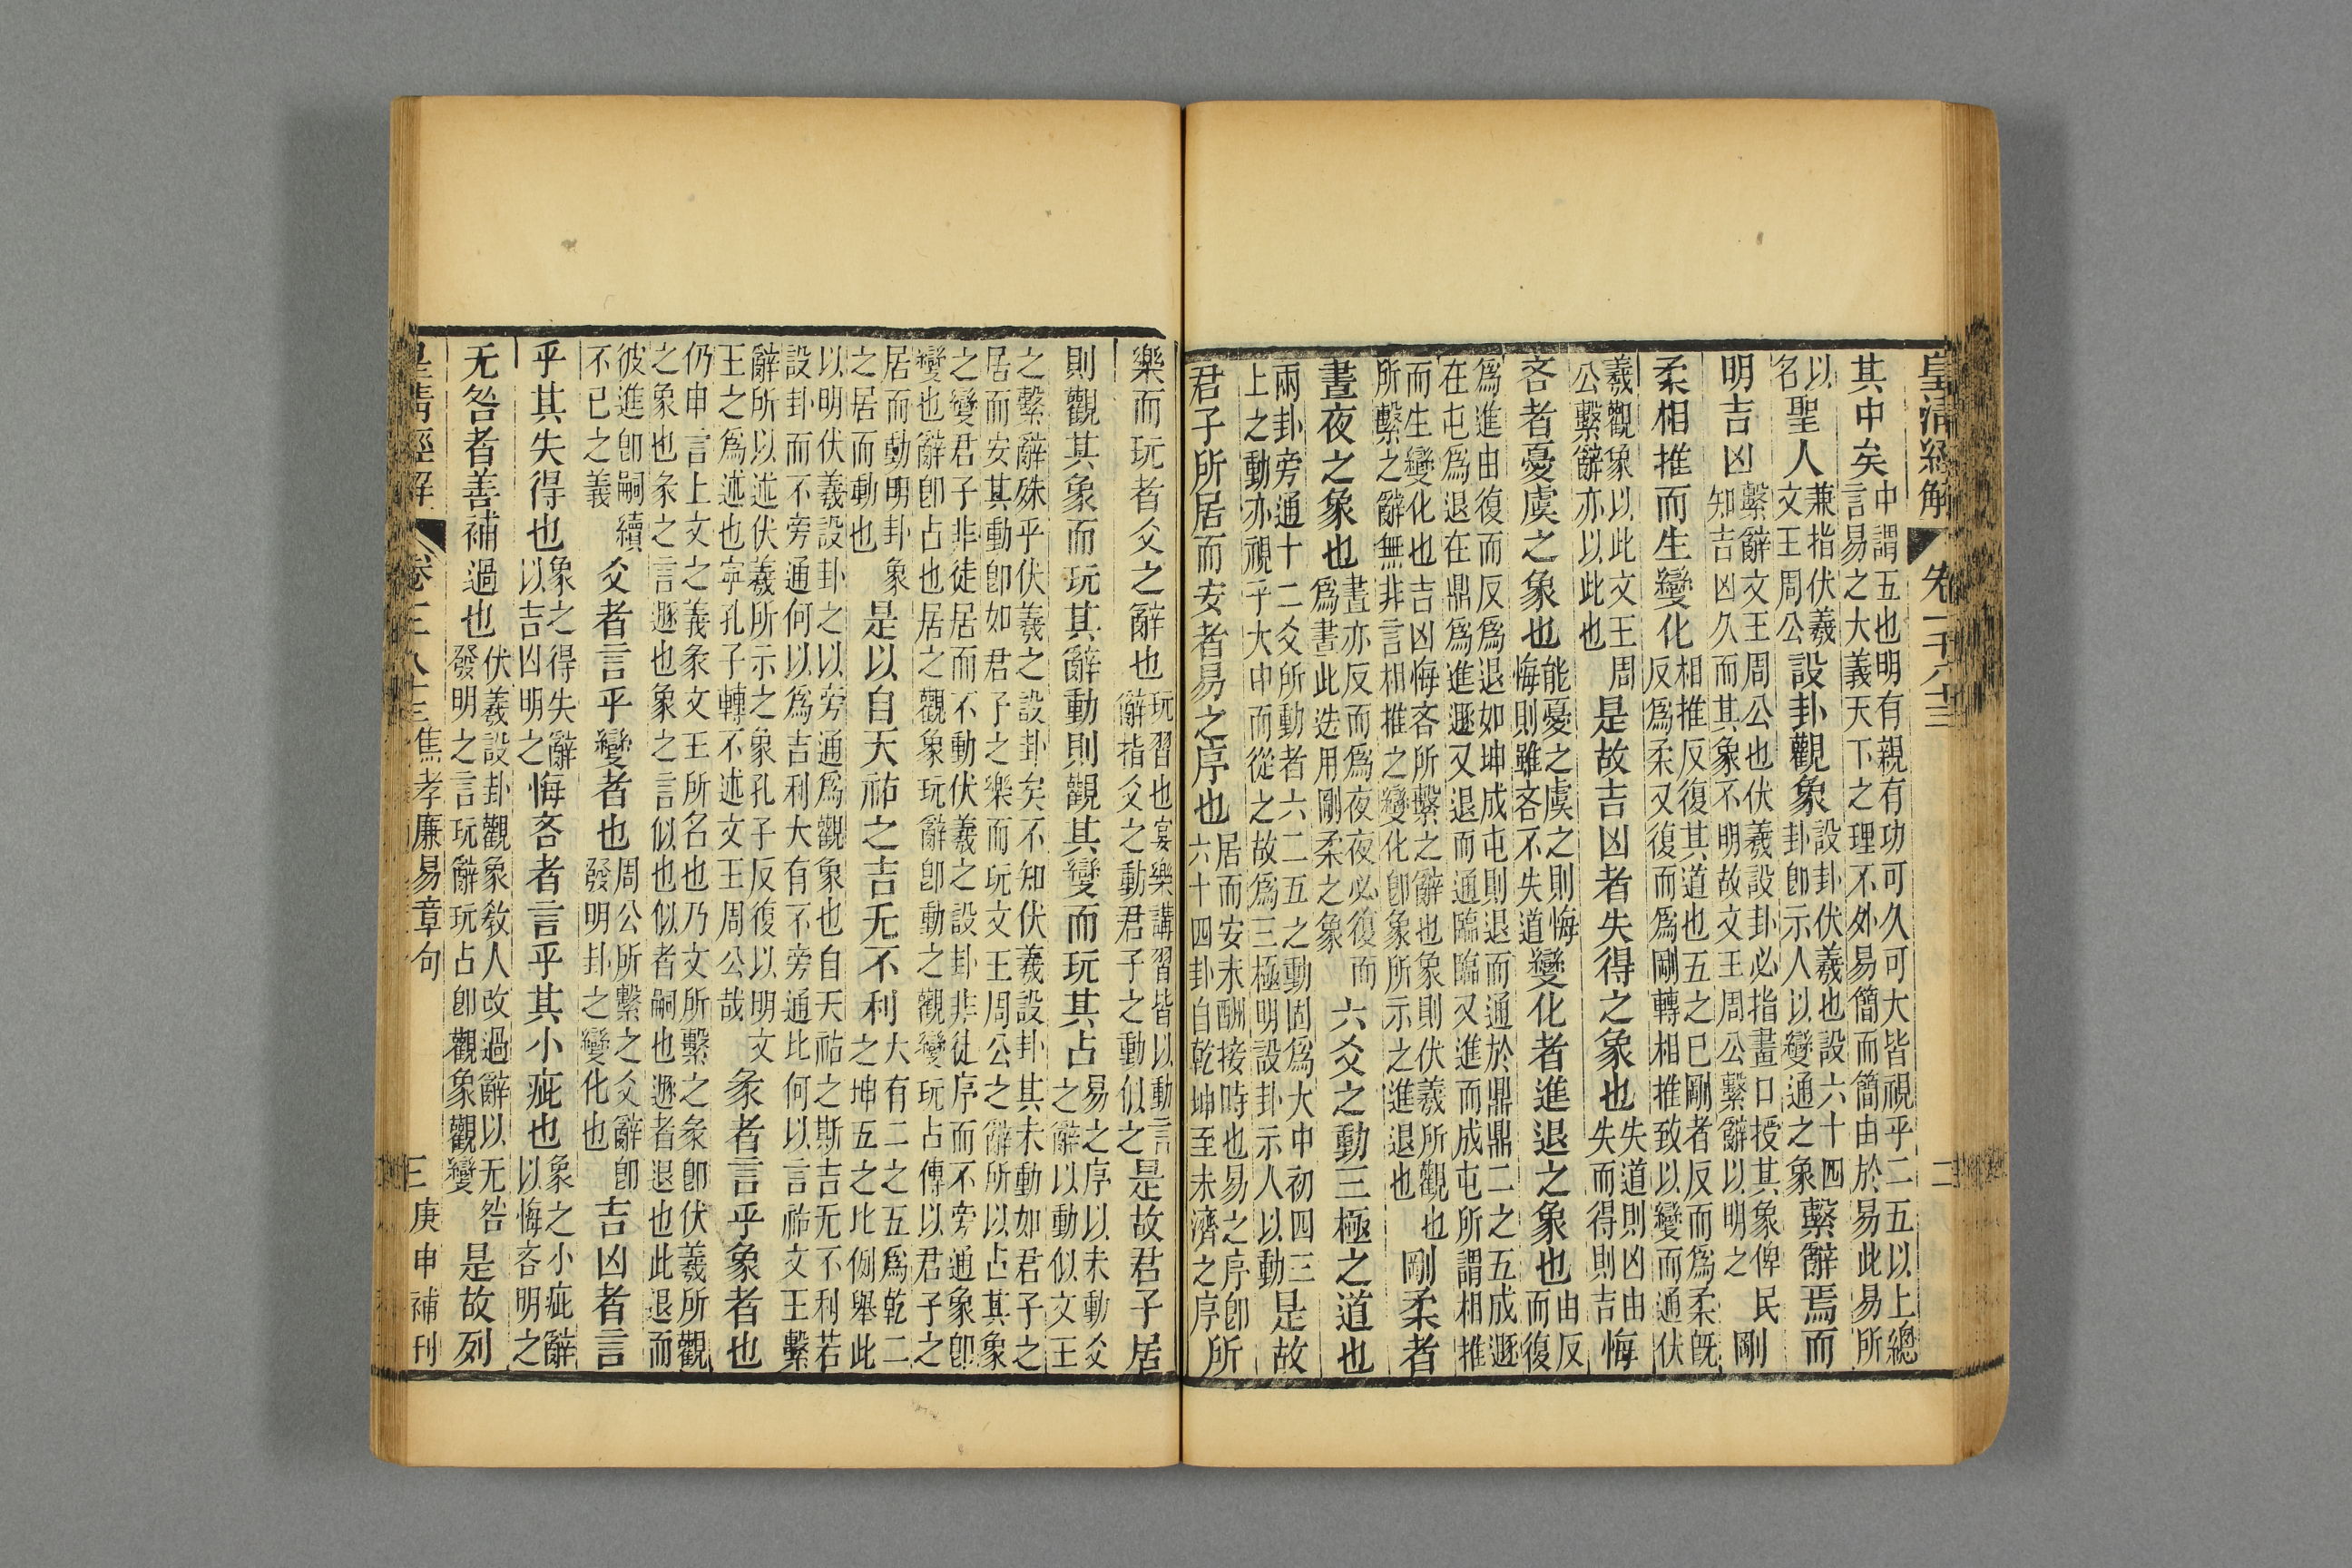 皇清經解 卷一千八十三 二
其中矣
中謂五也明有親有功可久可大皆視乎二五以上總
言易之大義天下之理不外易簡而簡由於易此易所
以
名
聖人
兼指伏羲
文王周公
設卦觀象
設卦伏羲也設六十四
卦卽示人以變通之象
繫辭焉而
明吉凶
繫辭文王周公也伏羲設卦必指畫口授其象俾民
知吉凶久而其象不明故文王周公繫辭以明之
剛
柔相推而生變化
相推反復其道也五之已剛者反而爲柔既
反爲柔又復而爲剛轉相推致以變而通伏
羲觀象以此文王周
公繫辭亦以此也
是故吉凶者失得之象也
失道則凶由
失而得則吉
悔
吝者憂虞之象也
能憂之虞之則悔
悔則雖吝不失道
變化者進退之象也
由反
而復
爲進由復而反爲退如坤成屯則退而通於鼎鼎二之五成遯
在屯爲退在鼎爲進遯又退而通臨臨又進而成屯所謂相推
而生變化也吉凶悔吝所繫之辭也象則伏羲所觀也
所繫之辭無非言相推之變化卽象所示之進退也
剛柔者
晝夜之象也
晝亦反而爲夜夜必復而
爲晝此迭用剛柔之象
六爻之動三極之道也
兩卦旁通十二爻所動者六二五之動固爲大中初四三
上之動亦視乎大中而從之故爲三極明設卦示人以動
是故
君子所居而安者易之序也
居而安未酬接時也易之序卽
六十四卦自乾坤至未濟之序
所
樂而玩者爻之辭也
玩習也宴樂講習皆以動言
辭指爻之動君子之動似之
是故君子居
則觀其象而玩其辭動則觀其變而玩其占
易之序以未動爻
之辭以動似文王
之繫辭殊乎伏羲之設卦矣不知伏羲設卦其未動如君子之
居而安其動卽如君子之樂而玩文王周公之辭所以占其象
之變君子非徒居而不動伏羲之設卦非徒序而不旁通象卽
變也辭卽占也居之觀象玩辭卽動之觀變玩占傳以君子之
居而動明卦象
之居而動也
是以自天祐之吉无不利
大有二之五爲乾二
之坤五之比例舉此
以明伏羲設卦之以旁通爲觀象也自天祐之斯吉无不利若
設卦而不旁通何以爲吉利大有不旁通比何以言祐文王繫
辭所以述伏羲所示之象孔子反復以明文
王之爲述也寧孔子轉不述文王周公哉
彖者言乎象者也
仍申言上文之義彖文王所名也乃文所繫之彖卽伏羲所觀
之象也彖之言遯也象之言似也似者嗣也遯者退也此退而
彼進卽嗣續
不已之義
爻者言乎變者也
周公所繫之爻辭卽
發明卦之變化也
吉凶者言
乎其失得也
象之得失辭
以吉凶明之
悔吝者言乎其小疵也
象之小疵辭
以悔吝明之
无咎者善補過也
伏羲設卦觀象敎人改過辭以无咎
發明之言玩辭玩占卽觀象觀變
是故列
皇清經解 卷一千八十三 焦孝廉易章句 三 庚申補刊